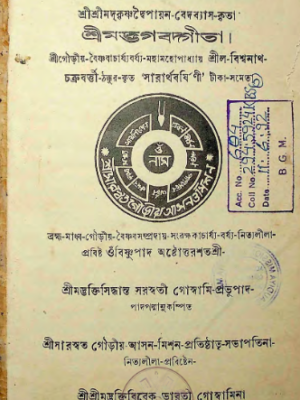 শ্রীশ্রীমদ্‌কৃষ্ণদ্বৈপায়ন-বেদব্যাস-কৃতা
শ্রীমদ্ভগবদ্গীতা।
শ্রীগৌড়ীয়-বৈষ্ণবাচার্য্যবর্য্য-মহামহোপাধ্যায় শ্রীল-বিশ্বনাথ-
চক্রবর্ত্তী-ঠক্কুর-কৃত 'সারার্থবর্ষিণী' টীকা-সমেতা
নাম
Acc. No.
Coll No.
Date
B. G. M.
ব্রহ্ম-মাধ্ব-গৌড়ীয়-বৈষ্ণবসম্প্রদায়-সংরক্ষকাচার্য্য-বর্য্য-নিত্যলীলা-
প্রবিষ্ট ওঁবিষ্ণুপাদ অষ্টোত্তরশতশ্রী-
শ্রীমদ্ভক্তিসিদ্ধান্ত সরস্বতী গোস্বামি-প্রভুপাদ-
পাদপদ্মানুকম্পিত
শ্রীসারস্বত গৌড়ীয়-আসন-মিশন-প্রতিষ্ঠাতৃ-সভাপতিনা
নিত্যলীলা-প্রবিষ্টেন-
শ্রীশ্রীমদ্ভক্তিবিবেক-ভারতী গোস্বামিনা